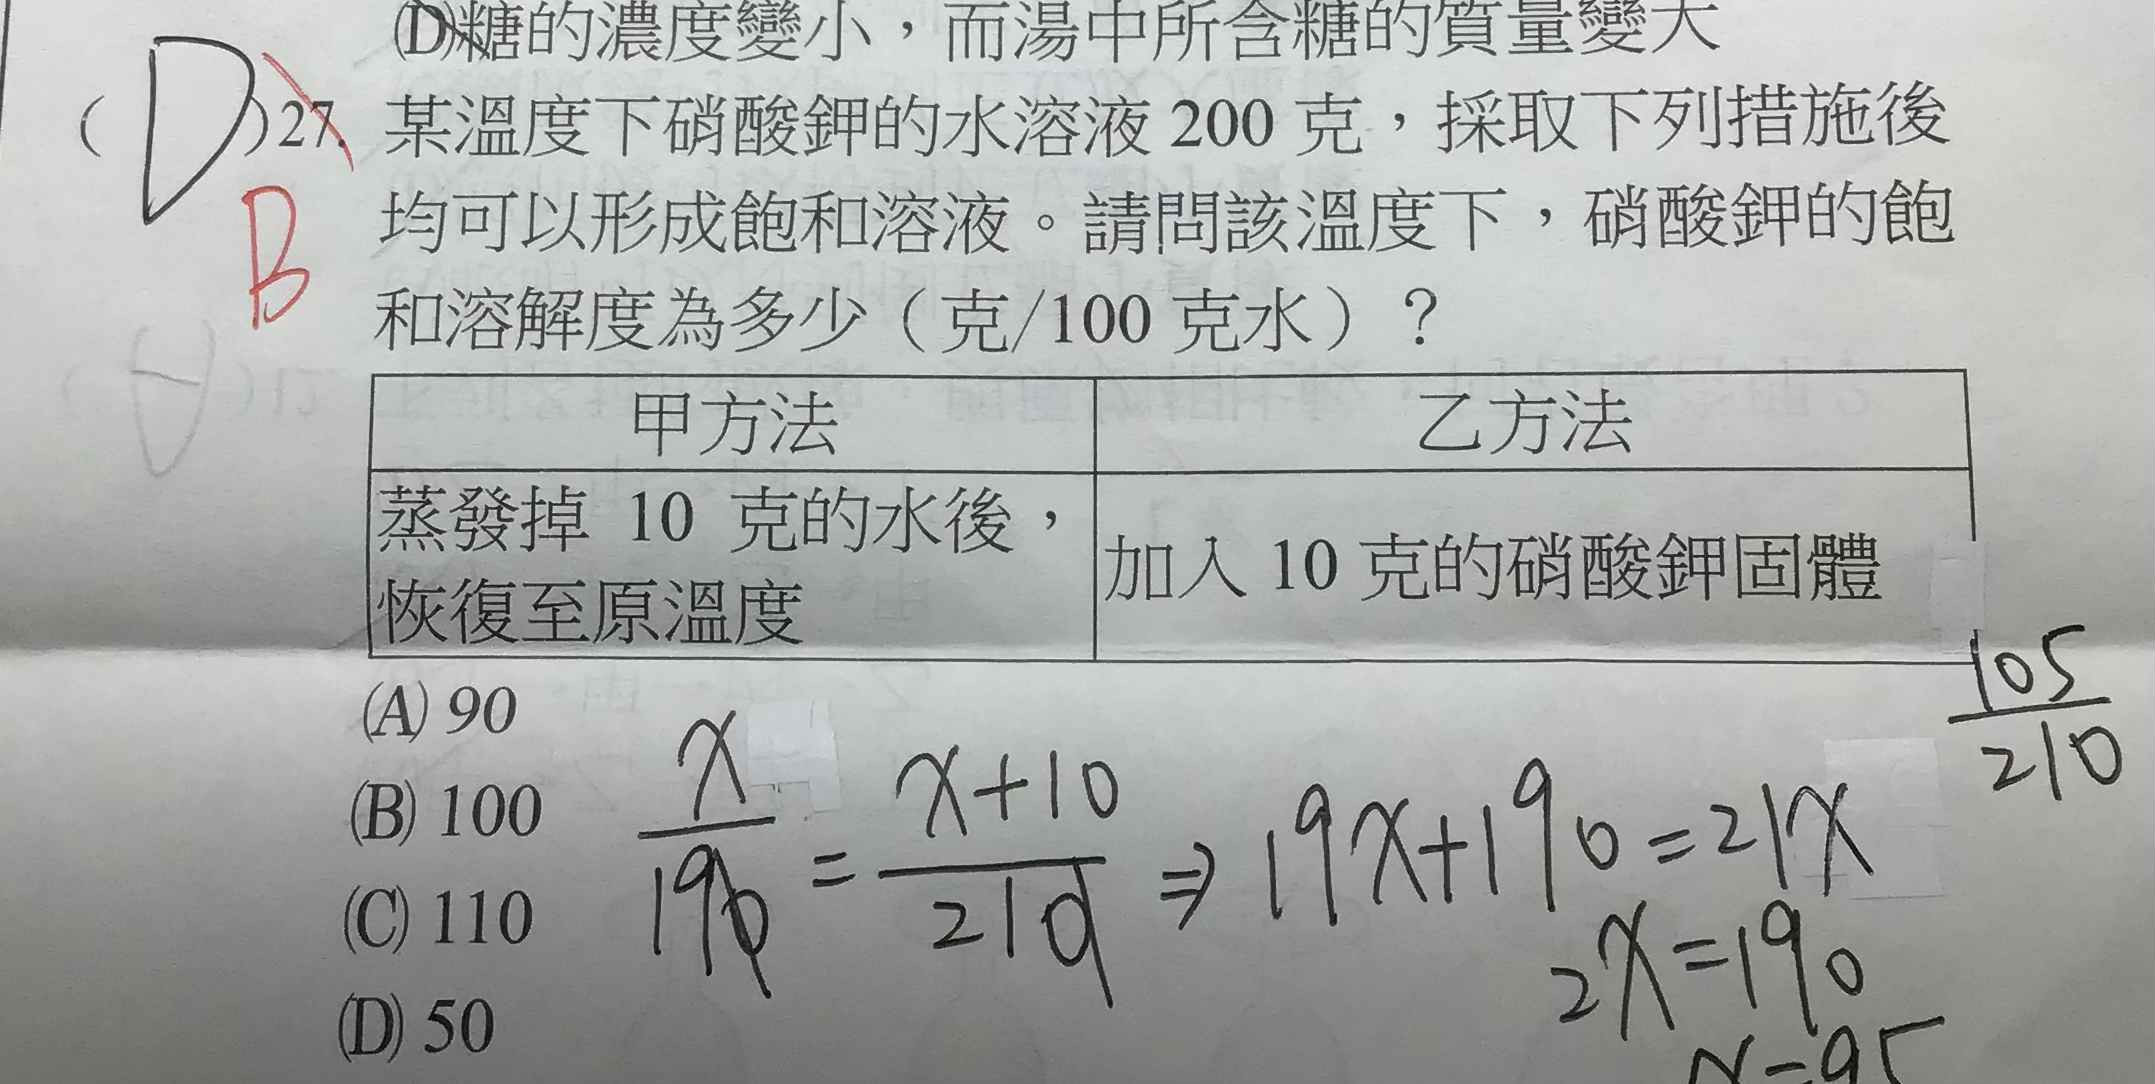 (D)糖的濃度變小，而湯中所含糖的質量變大
( D )27. 某溫度下硝酸鉀的水溶液 200 克，採取下列措施後
B 均可以形成飽和溶液。請問該溫度下，硝酸鉀的飽
和溶解度為多少（克/100 克水）？
甲方法 乙方法
蒸發掉 10 克的水後，
恢復至原溫度
加入 10 克的硝酸鉀固體
105/210
(A) 90
(B) 100
(C) 110
(D) 50
x/190 = x+10/210 ⇒ 19x+190=21x
2x=190
x=95